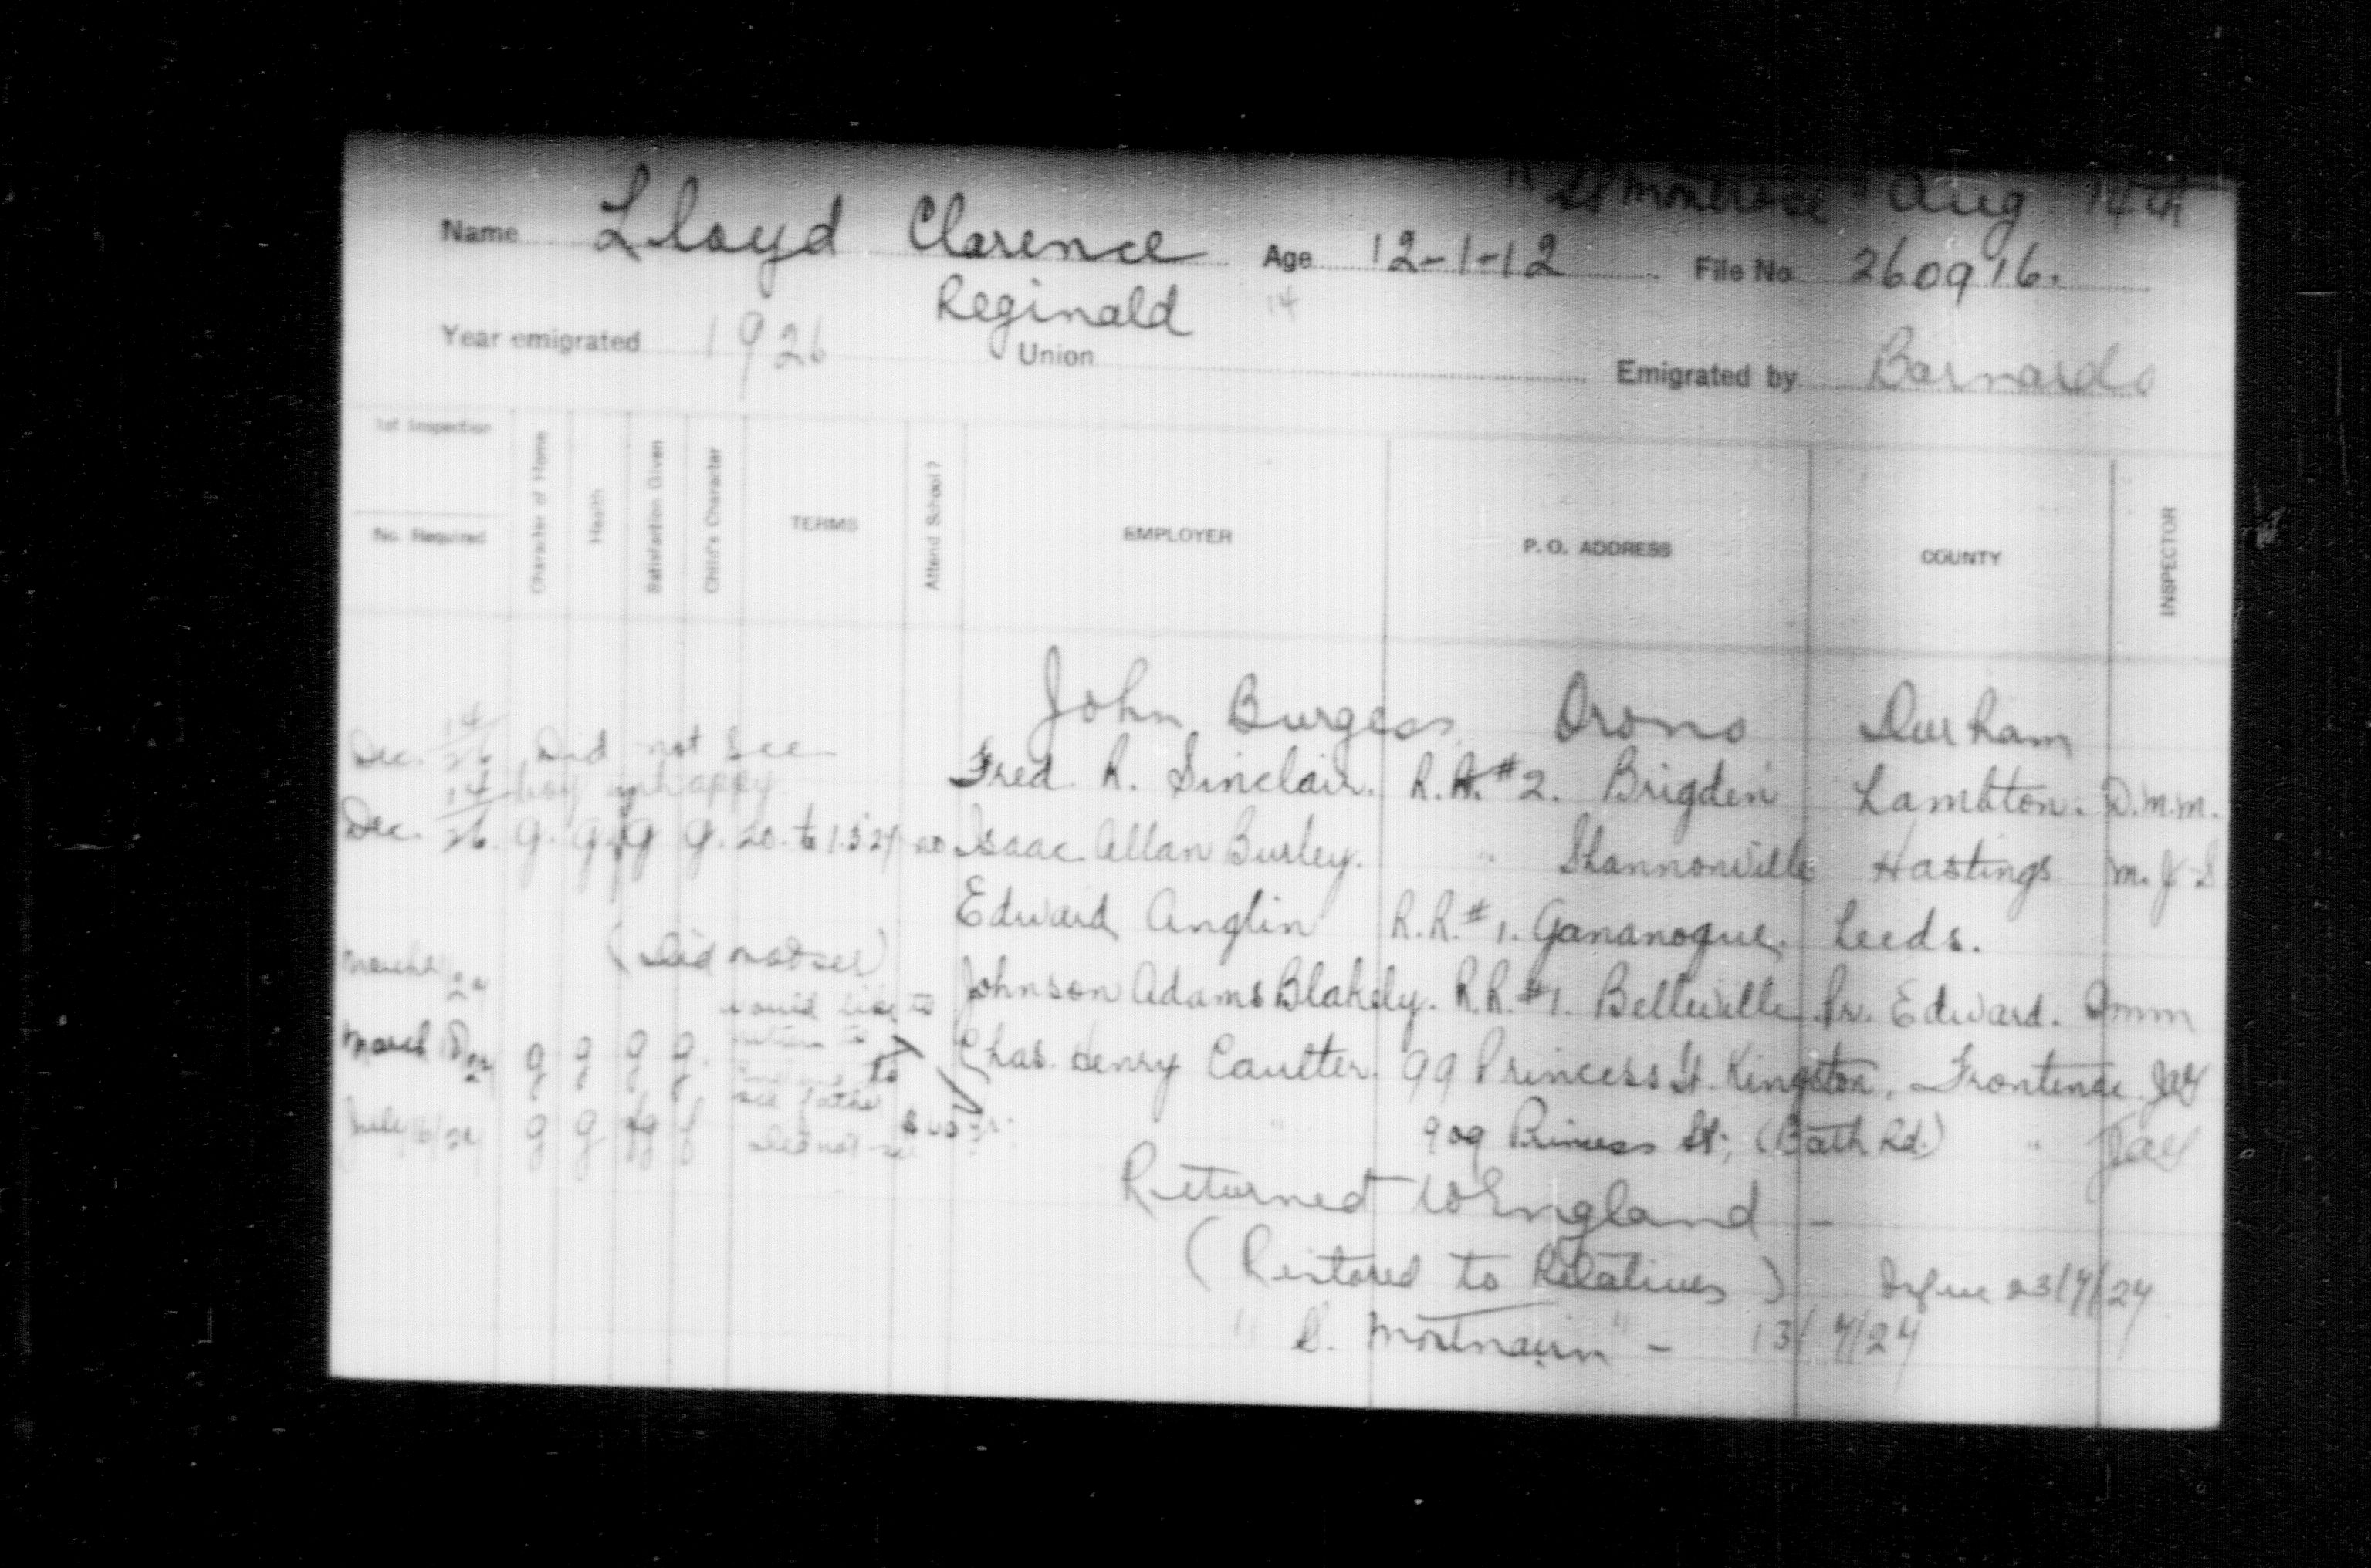 "SS Montrose" Aug 14th
Name Lloyd Clarence Age 12-1-12 File No. 260916.
Reginald 14
Year emigrated 1926 Union Emigrated by Barnardo
1st Inspection
No. Required
Character of Home
Health
Satisfaction Given
Child's Character
TERMS
Attend School?
EMPLOYER
P. O. ADDRESS
COUNTY
INSPECTOR
John Burgess Orono Durham
Dec. 14/26 Did not see Fred. R. Sinclair. R.R. #2. Brigden Lambton. D.M.M.
boy unhappy
Dec. 14/26. g. g. g g. 20. to 1.5.27 no Isaac Allan Burley. " Shannonville Hastings M.J.S
Edward Anglin R.R. #1. Gananoque. Leeds.
(Did not see) Johnson Adams Blakely. R.R. #1. Belleville. Pr. Edward. Dmm
would like to
return to
March g g g g. Chas. Henry Caulter. 99 Princess St. Kingston. Frontenac.
England to
see father
July g g Did not see " 909 Princess St; (Bath Rd.) "
Returned to England -
(Restored to Relatives)
"S. Montnairn" -